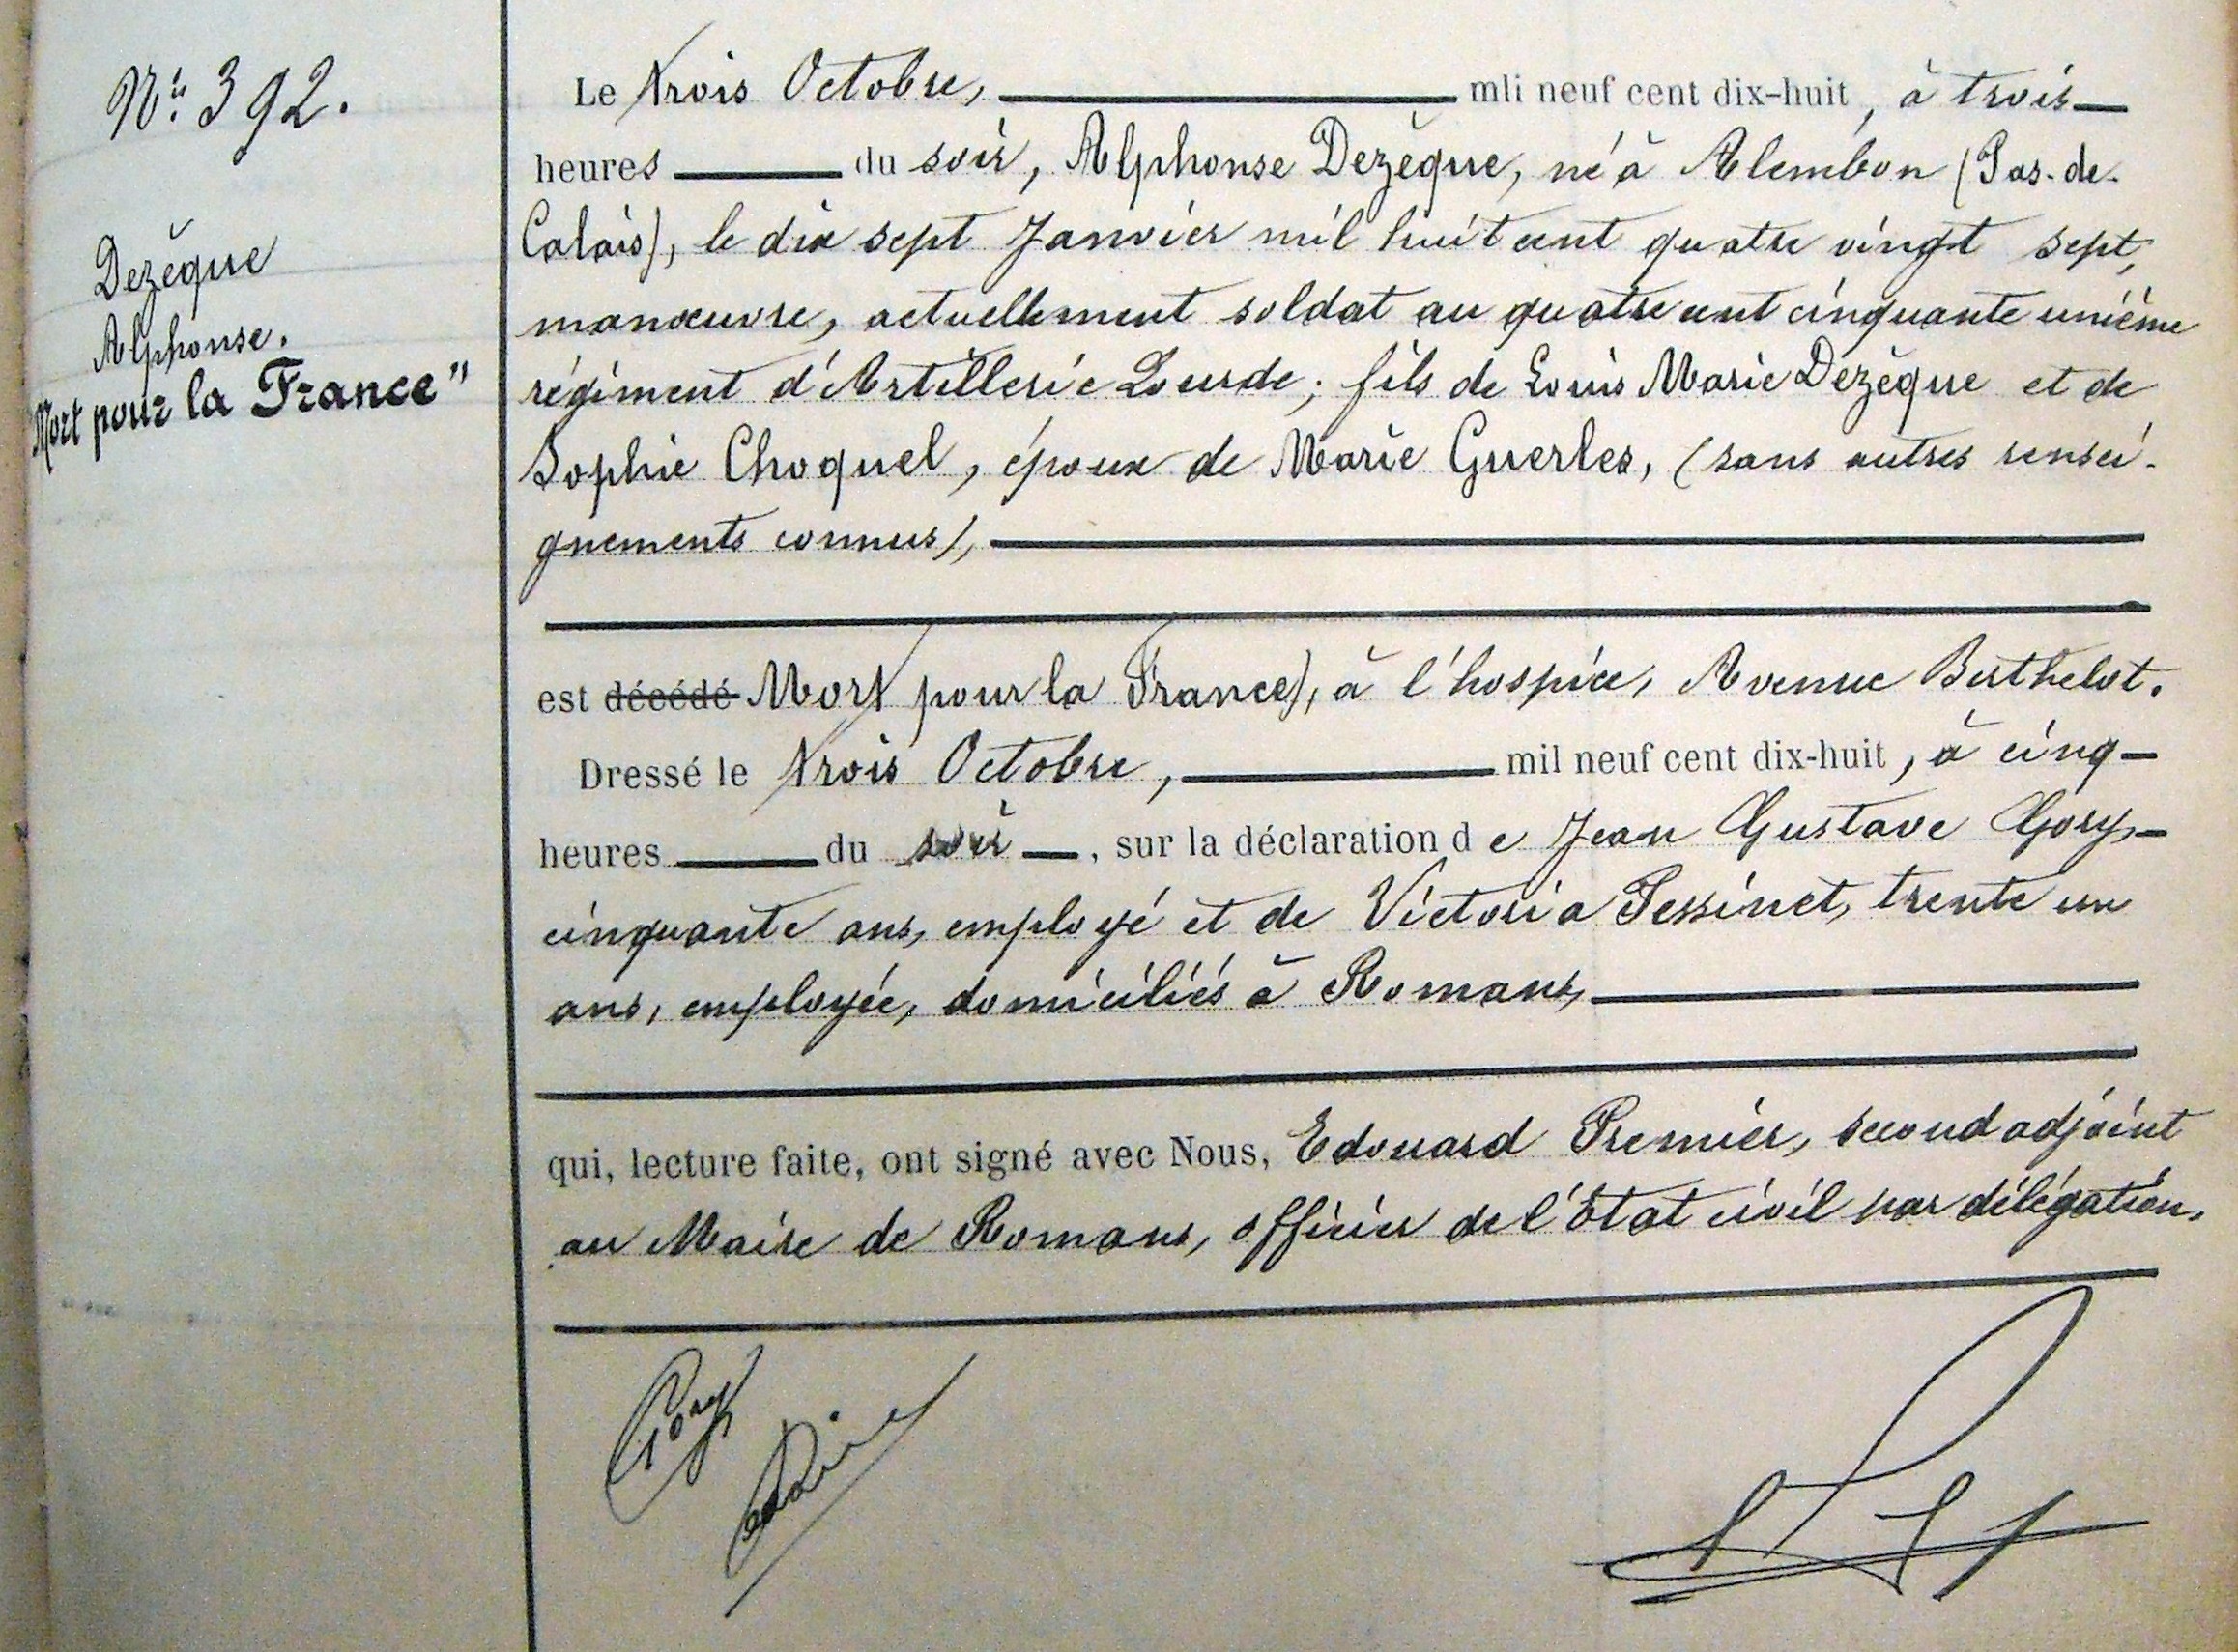 N° 392.
Dezègue
Alphonse.
"Mort pour la France"
Le trois Octobre, mli neuf cent dix-huit, à trois
heures du soir, Alphonse Dezègue, né à Alembon (Pas-de-
Calais), le dix sept Janvier mil huit cent quatre vingt sept,
manœuvre, actuellement soldat au quatre cent cinquante unième
régiment d'Artillerie Lourde; fils de Louis Marie Dezègue et de
Sophie Choquel, époux de Marie Guerles, (sans autres rensei-
gnements connus),
est décédé Mort pour la France), à l'hospice, Avenue Berthelot.
Dressé le trois Octobre, mil neuf cent dix-huit, à cinq
heures du soir, sur la déclaration de Jean Gustave Gory,
cinquante ans, employé et de Victoria Pessinet, trente un
ans, employée, domiciliés à Romans,
qui, lecture faite, ont signé avec Nous, Edouard Premier, second adjoint
au Maire de Romans, officier de l'Etat civil par délégation.
Gory